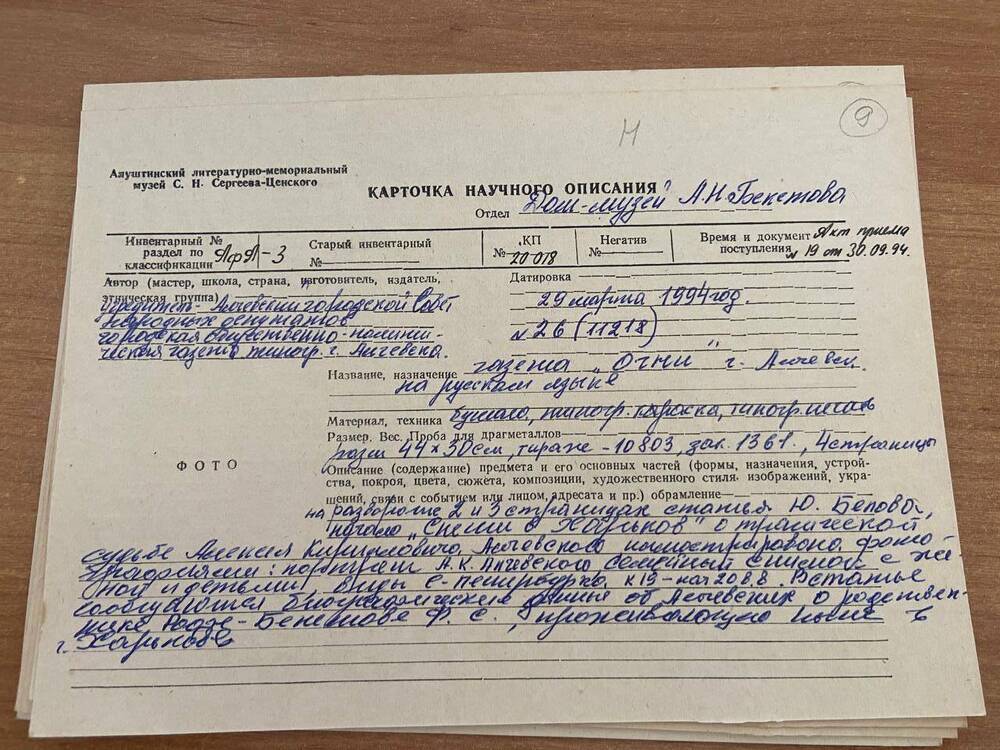 Н
9
Алуштинский литературно-мемориальный
музей С. Н. Сергеева-Ценского
КАРТОЧКА НАУЧНОГО ОПИСАНИЯ
Отдел "Дом-музей А.Н.Бекетова
Инвентарный № раздел по классификации АфА-3
Старый инвентарный №
КП № 20018
Негатив №
Время и документ поступления Акт приема № 19 от 30.09.94.
Автор (мастер, школа, страна, изготовитель, издатель,
этническая группа)
учредитель - Алчевский городской Совет
народных депутатов
городская общественно-полити-
ческая газета типогр. г. Алчевска.
Датировка
29 марта 1994 год.
№ 26 (11218)
Название, назначение газета "Огни" г. Алчевск.
на русском языке
Материал, техника бумага, типогр. краска, типогр. печать
Размер. Вес. Проба для драгметаллов
разм 44×30см, тираж - 10803, зак. 1361., 4 страницы
ФОТО
Описание (содержание) предмета и его основных частей (формы, назначения, устрой-
ства, покроя, цвета, сюжета, композиции, художественного стиля изображений, укра-
шений, связи с событием или лицом, адресата и пр.) обрамление
на развороте 2 и 3 страницах статья Ю. Белова,
начало о трагической
судьбе Алексея Кирилловича Алчевского иллюстрирована фото-
графиями: портрет А.К. Алчевского семейный снимок с же-
ной и детьми, виды С-Петербурга к 19 - нач 20 в.в. В статье
сообщаются биографические данные об Алчевских о родствен-
нике Ф. С., проживающего ныне в
г. Харькове